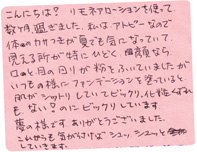 こんにちは？ リモネアローションを使って
数ヶ月過ぎました。私はアトピーなので
体のカサつきが夏でも気になっていて
見える所が特にひどく、顔なら
口の周りと目の回りが粉をふいていましたが
いつもの様にファンデーションを塗っていると
肌がシットリしていてビックリ、化粧くずれ
も、ない？のにビックリしています。
夢の様です ありがとうございました。
これからも気が付けばシュッシュッと
していきます。